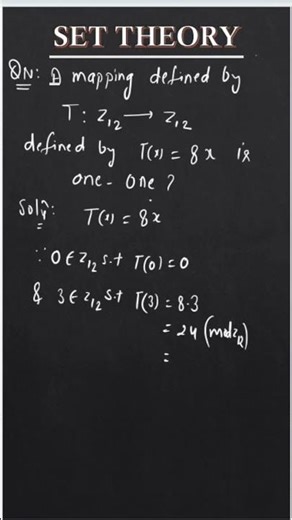 SET THEORY
QN: A mapping defined by
T: Z₁₂ → Z₁₂
defined by T(x) = 8x is
one-one ?
Solⁿ: T(x) = 8x
∵ 0 ∈ Z₁₂ s.t T(0) = 0
& 3 ∈ Z₁₂ s.t T(3) = 8·3
= 24 (mod
=